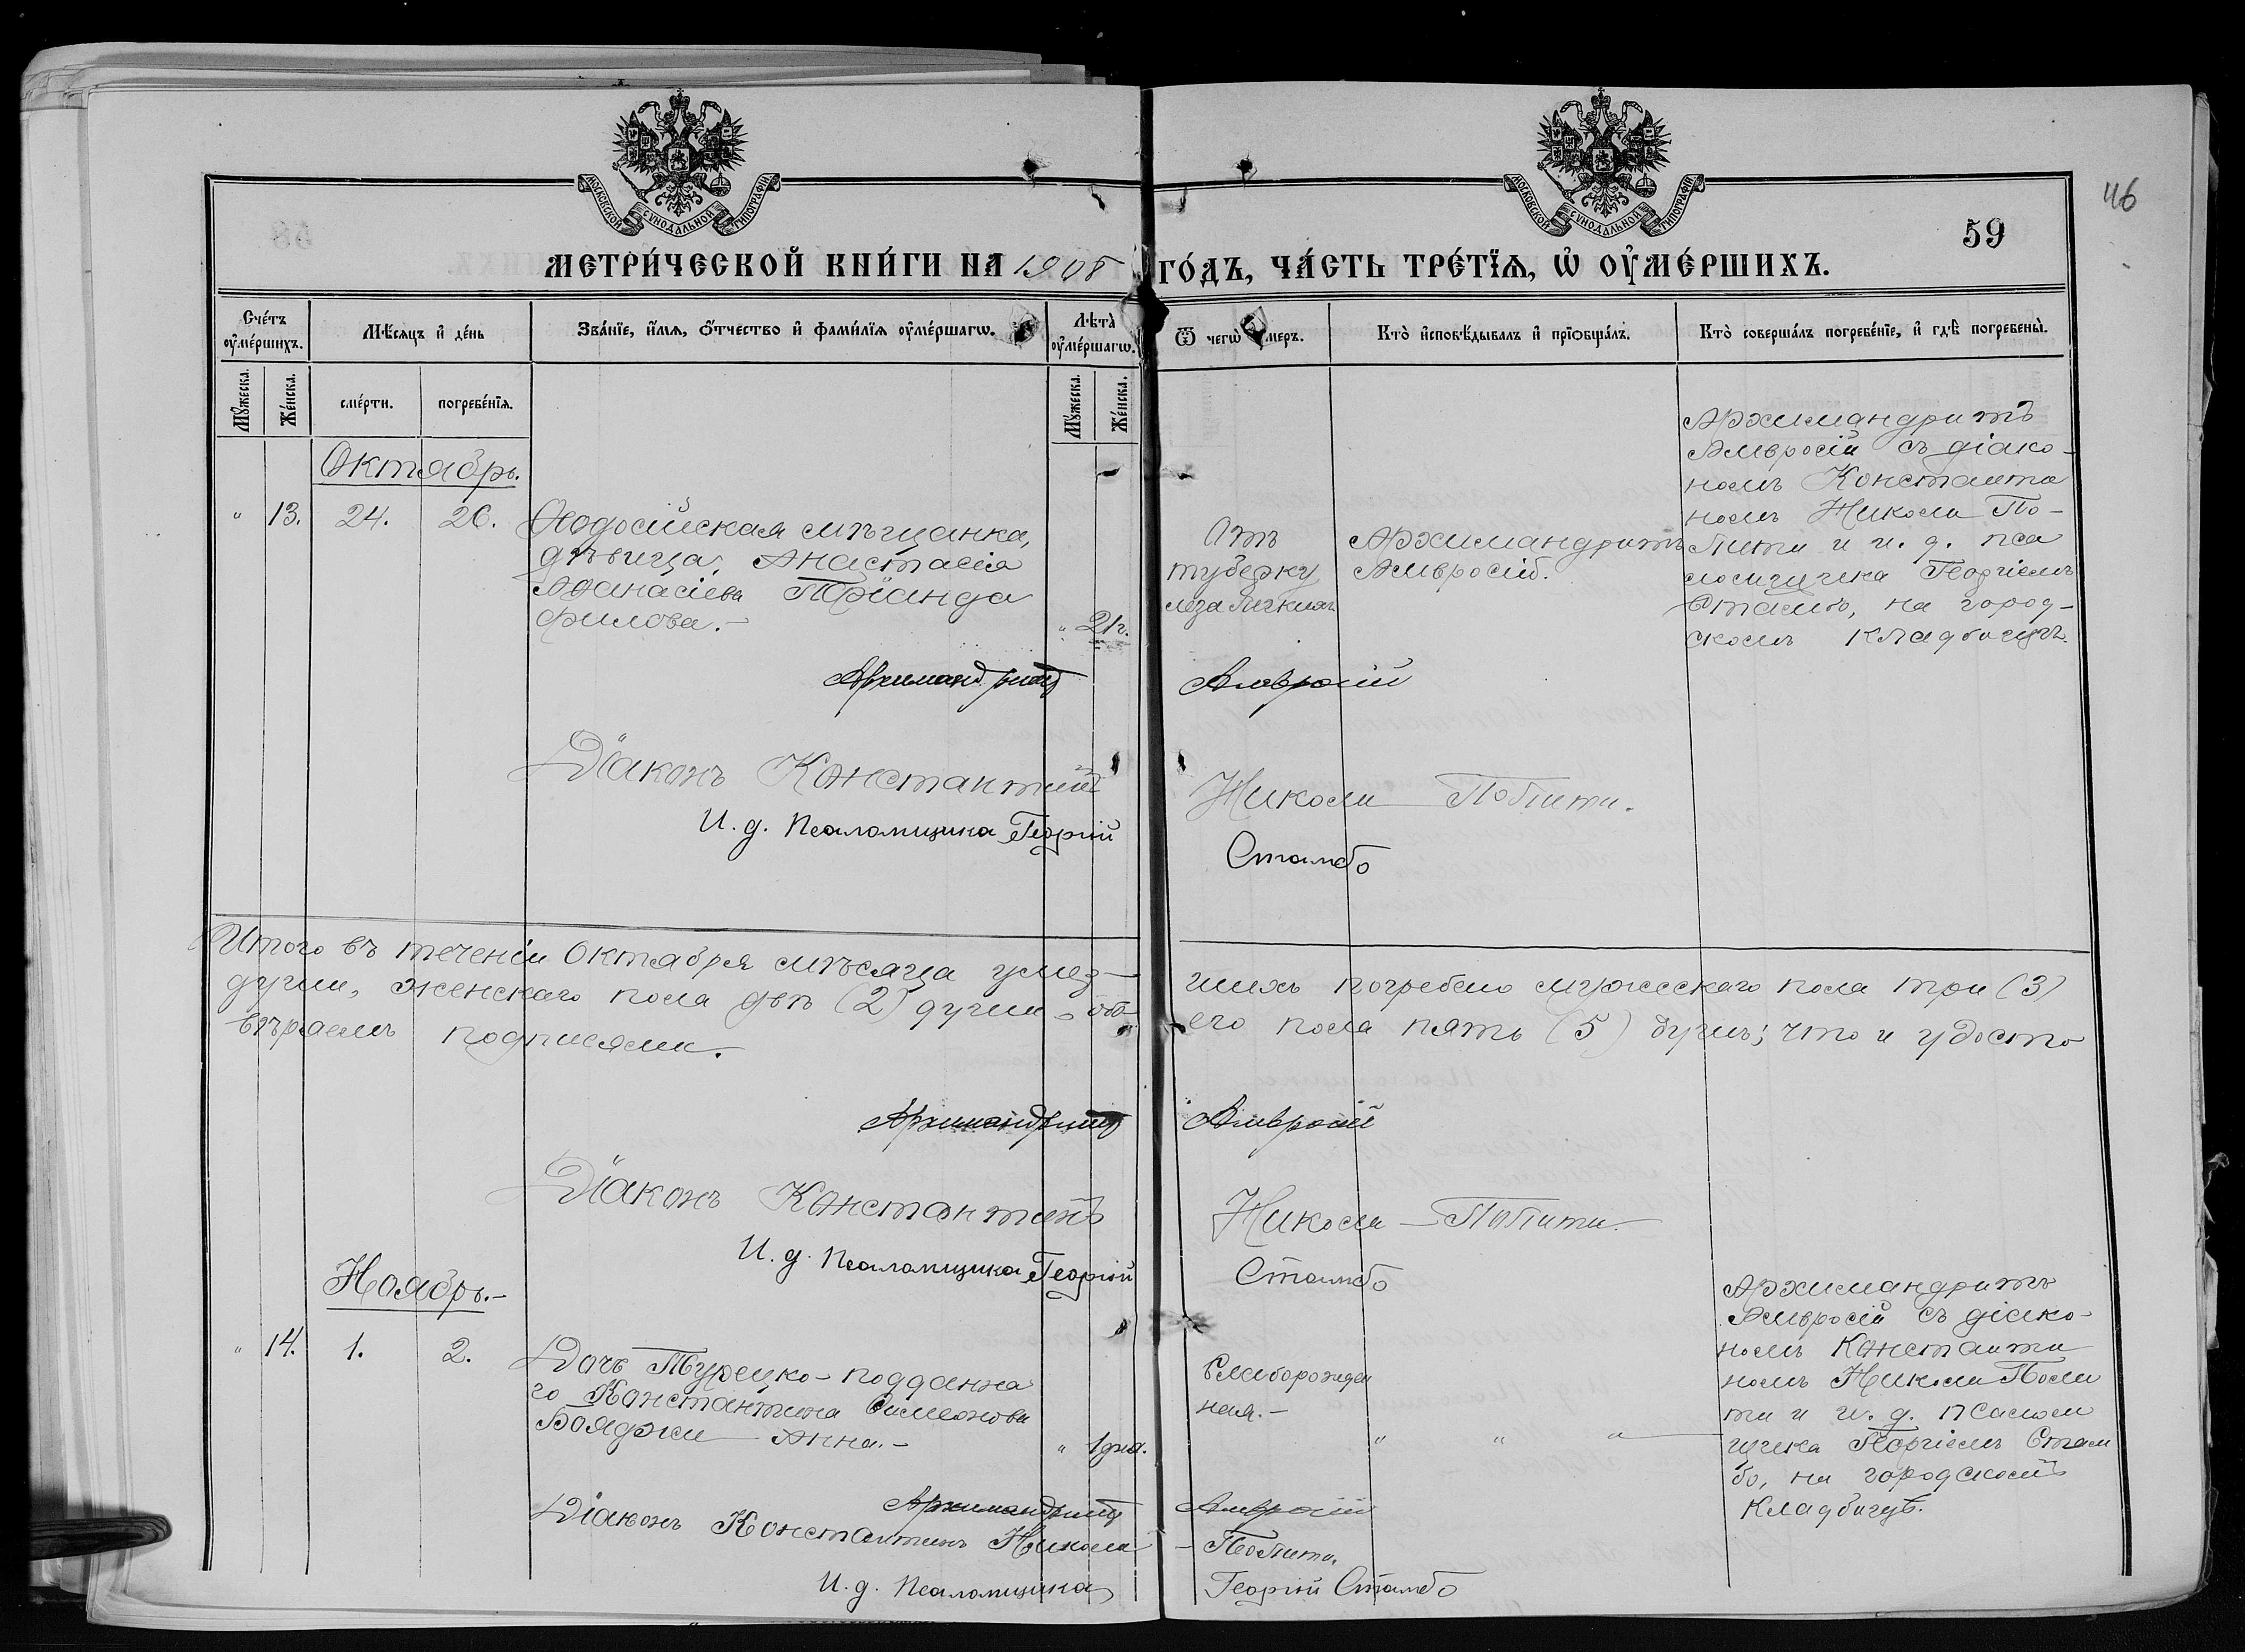 МОСКОВСКОЙ СѴНОДАЛЬНОЙ ТИПОГРАФІИ
МОСКОВСКОЙ СѴНОДАЛЬНОЙ ТИПОГРАФІИ
46
59
МЕТРИ́ЧЕСКОЙ КНИ́ГИ НА 1908 ГО́ДЪ, ЧА́СТЬ ТРЕ́ТЇѦ, Ѡ҆ ОУ҆МЕ́РШИХЪ.
Сче́тъ оу҆ме́ршихъ.
Мѣ́сяцъ и҆ де́нь
Зва́нїе, и҆́мя, ѻ҆́тчество и҆ фами́лїя оу҆ме́ршагѡ.
Лѣта̀ оу҆ме́ршагѡ.
Ѿ чегѡ̀ оу҆́меръ.
Кто̀ и҆сповѣ́дывалъ и҆ прїѻбща́лъ.
Кто̀ соверша́лъ погребе́нїе, и҆ гдѣ̀ погребены̀.
Мꙋ́жеска.
Же́нска.
сме́рти.
погребе́нїя.
Мꙋ́жеска.
Же́нска.
Октябрь.
" 13. 24. 26.
Ѳеодосійская мѣщанка,
дѣвица, Анастасія
Аѳанасіева Тріанда
филова.-
" 21г.
Отъ
туберку
леза легкихъ
Архимандритъ
Амвросій.
Архимандритъ
Амвросій съ діако-
номъ Константи
номъ Николи По-
лити и и. д. пса
ломщика Георгіемъ
Стамбо, на город-
скомъ кладбищѣ.
Архимандритъ Амвросій
Діаконъ Константинъ Николи Полити.
И. д. Псаломщика Георгій Стамбо
Итого въ теченіи Октября мѣсяца умер- шихъ погребено мужескаго пола три (3)
души, женскаго пола двѣ (2) души, обо его пола пять (5) душъ; что и удосто
вѣряемъ подписями.
Архимандритъ Амвросій
Діаконъ Константинъ Николи Полити.
И. д. Псаломщика Георгій Стамбо
Ноябрь.-
" 14. 1. 2.
Дочь Турецко-подданна
го Константина Симеонова
Бояджи Анна.-
" 1 дня.
Слаборожден
ная.-
" " "
Архимандритъ
Амвросій съ діако-
номъ Константи
номъ Николи Поли
ти и и. д. псалом
щика Георгіемъ Стам
бо, на городскомъ
кладбищѣ.
Архимандритъ Амвросій
Діаконъ Константинъ Николи - Полити.
И. д. Псаломщика Георгій Стамбо